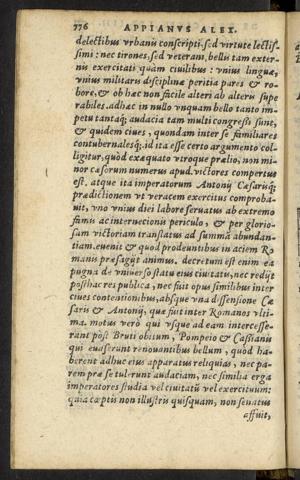 776 APPIANVS ALEX.
delectibus vrbanis conscripti, sed virtute lectis-
simi: nec tirones, sed veterani, bellis tam exter-
nis exercitati quàm ciuilibus: vnius linguæ,
vnius militaris disciplinæ peritia pares & ro-
bore, & ob hæc non facile alteri ab alteris supe
rabiles. adhæc in nullo vnquam bello tanto im-
petu tantaq; audacia tam multi congressi sunt,
& quidem ciues, quondam inter se familiares
contubernalesq;. id ita esse certo argumento col-
ligitur, quòd exæquato vtroque prælio, non mi-
nor cæsorum numerus apud victores compertus
est. atque ita imperatorum Antonij Cæsarisq;
prædictionem vt veracem exercitus comproba-
uit, vno vnius diei labore seruatus ab extremo
famis ac internecionis periculo, & per glorio-
sam victoriam translatus ad summã abundan-
tiam. euenit & quod prodeuntibus in aciem Ro
manis præsagijt animus. decretum est enim ea
pugna de vniuerso statu eius ciuitatis, nec redijt
posthac res publica, nec fuit opus similibus inter
ciues contentionibus, absque vna dissensione Cæ
saris & Antonij, quæ fuit inter Romanos vlti-
ma. motus verò qui vsque ad eam intercesse-
rant pòst Bruti obitum, Pompeio & Cassianis
qui euaserant renouantibus bellum, quod ha-
berent adhuc eius apparatus reliquias, nec pa-
rem præ se tulerunt audaciam, nec similia erga
imperatores studia vel ciuitatũ vel exercituum:
quia captis non illustris quisquam, non senatus
affuit,